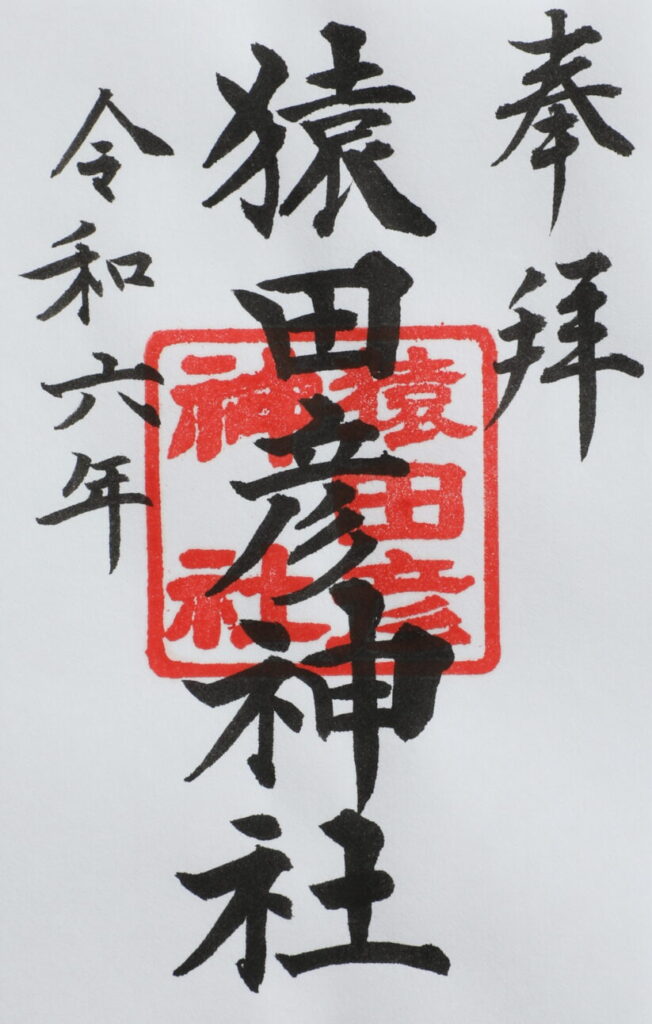 奉拝
猿田彦神社
猿田彦
神社
令和六年